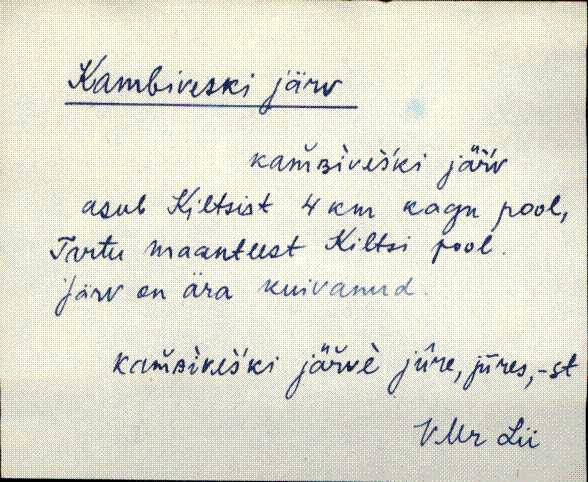 Kambiveski järv
kam̆ʙìveśki jär̆v
asub Kiltsist 4 km kagu pool,
Tartu maanteest Kiltsi pool.
Järv on ära kuivanud.
kam̆ʙìveśki jär̆vè jūre, jūres, -st
VMr Lii